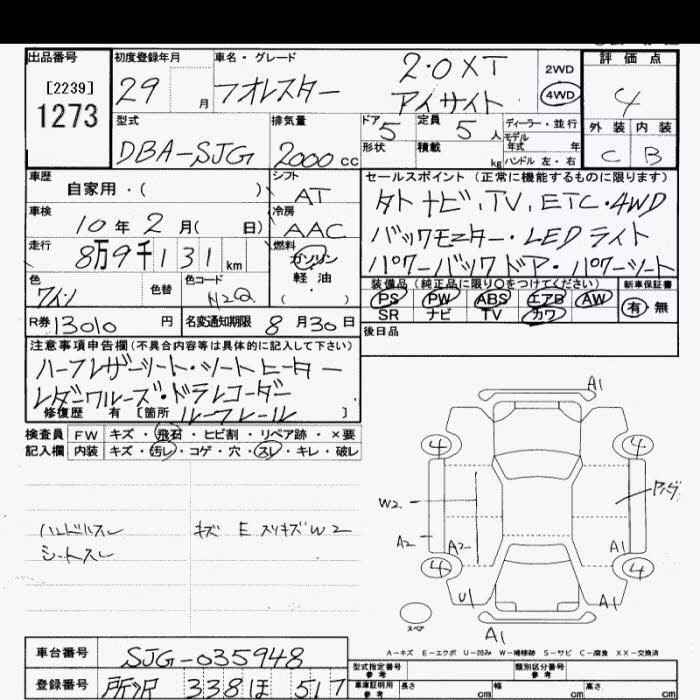 出品番号 初度登録年月 車名・グレード 評価点
[2239] 29 月 フオレスター 2.0XT 2WD 4
1273 アイサイト 4WD
型式 排気量 ドア 定員 ディーラー・並行 外装 内装
DBA-SJG 2000cc 5 5人 モデル年式 年 C B
形状 積載 kg ハンドル 左・右
車歴 自家用・( ) シフト AT セールスポイント (正常に機能するものに限ります)
車検 10年2月( 日) 冷房 AAC タトナビ,TV,ETC・4WD
走行 8万9千131km 燃料 ガソリン バックモニター・LEDライト
軽油 ( ) パワーバックドア・パワーシート
色 ワイン 色替 色コード H2Q 装備品 (純正品に限り○をつけてください) 新車保証書
PS PW ABS エアB AW 有 無
R券 13010円 名変通知期限 8月30日 SR ナビ TV カワ
注意事項申告欄(不具合内容等は具体的に記入して下さい) 後日品
ハーフレザーシート・シートヒーター
レダクルーズ・ドラレコーダー
修復歴 有 [箇所 ルーフレール ]
検査員 FW キズ・飛石・ヒビ割・リペア跡・×要
記入欄 内装 キズ・汚レ・コゲ・穴・スレ・キレ・破レ
A1
4 4
W2
A2 A2 A1
4 4
U1 A1
スペア A1
ハンドルスレ キズ E スリキズW2
シートスレ
A-キズ E-エクボ U-凹み W-補修跡 S-サビ C-腐食 XX-交換済
車台番号 SJG-035948
登録番号 所沢 338 ほ 517
型式指定番号 参考 類別区分番号 参考
車庫証明用 参考 長さ cm 幅 cm 高さ cm